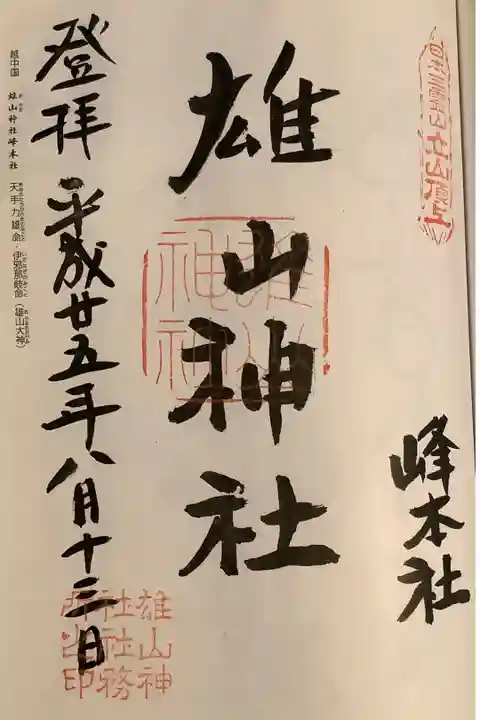 日本三霊山立山頂上
峰本社
雄山神社
雄山神社
登拝 平成廿五年八月十三日
雄山神
社社務
所之印
越中国 雄山神社峰本社 天手力雄命・伊邪那岐命(雄山大神)